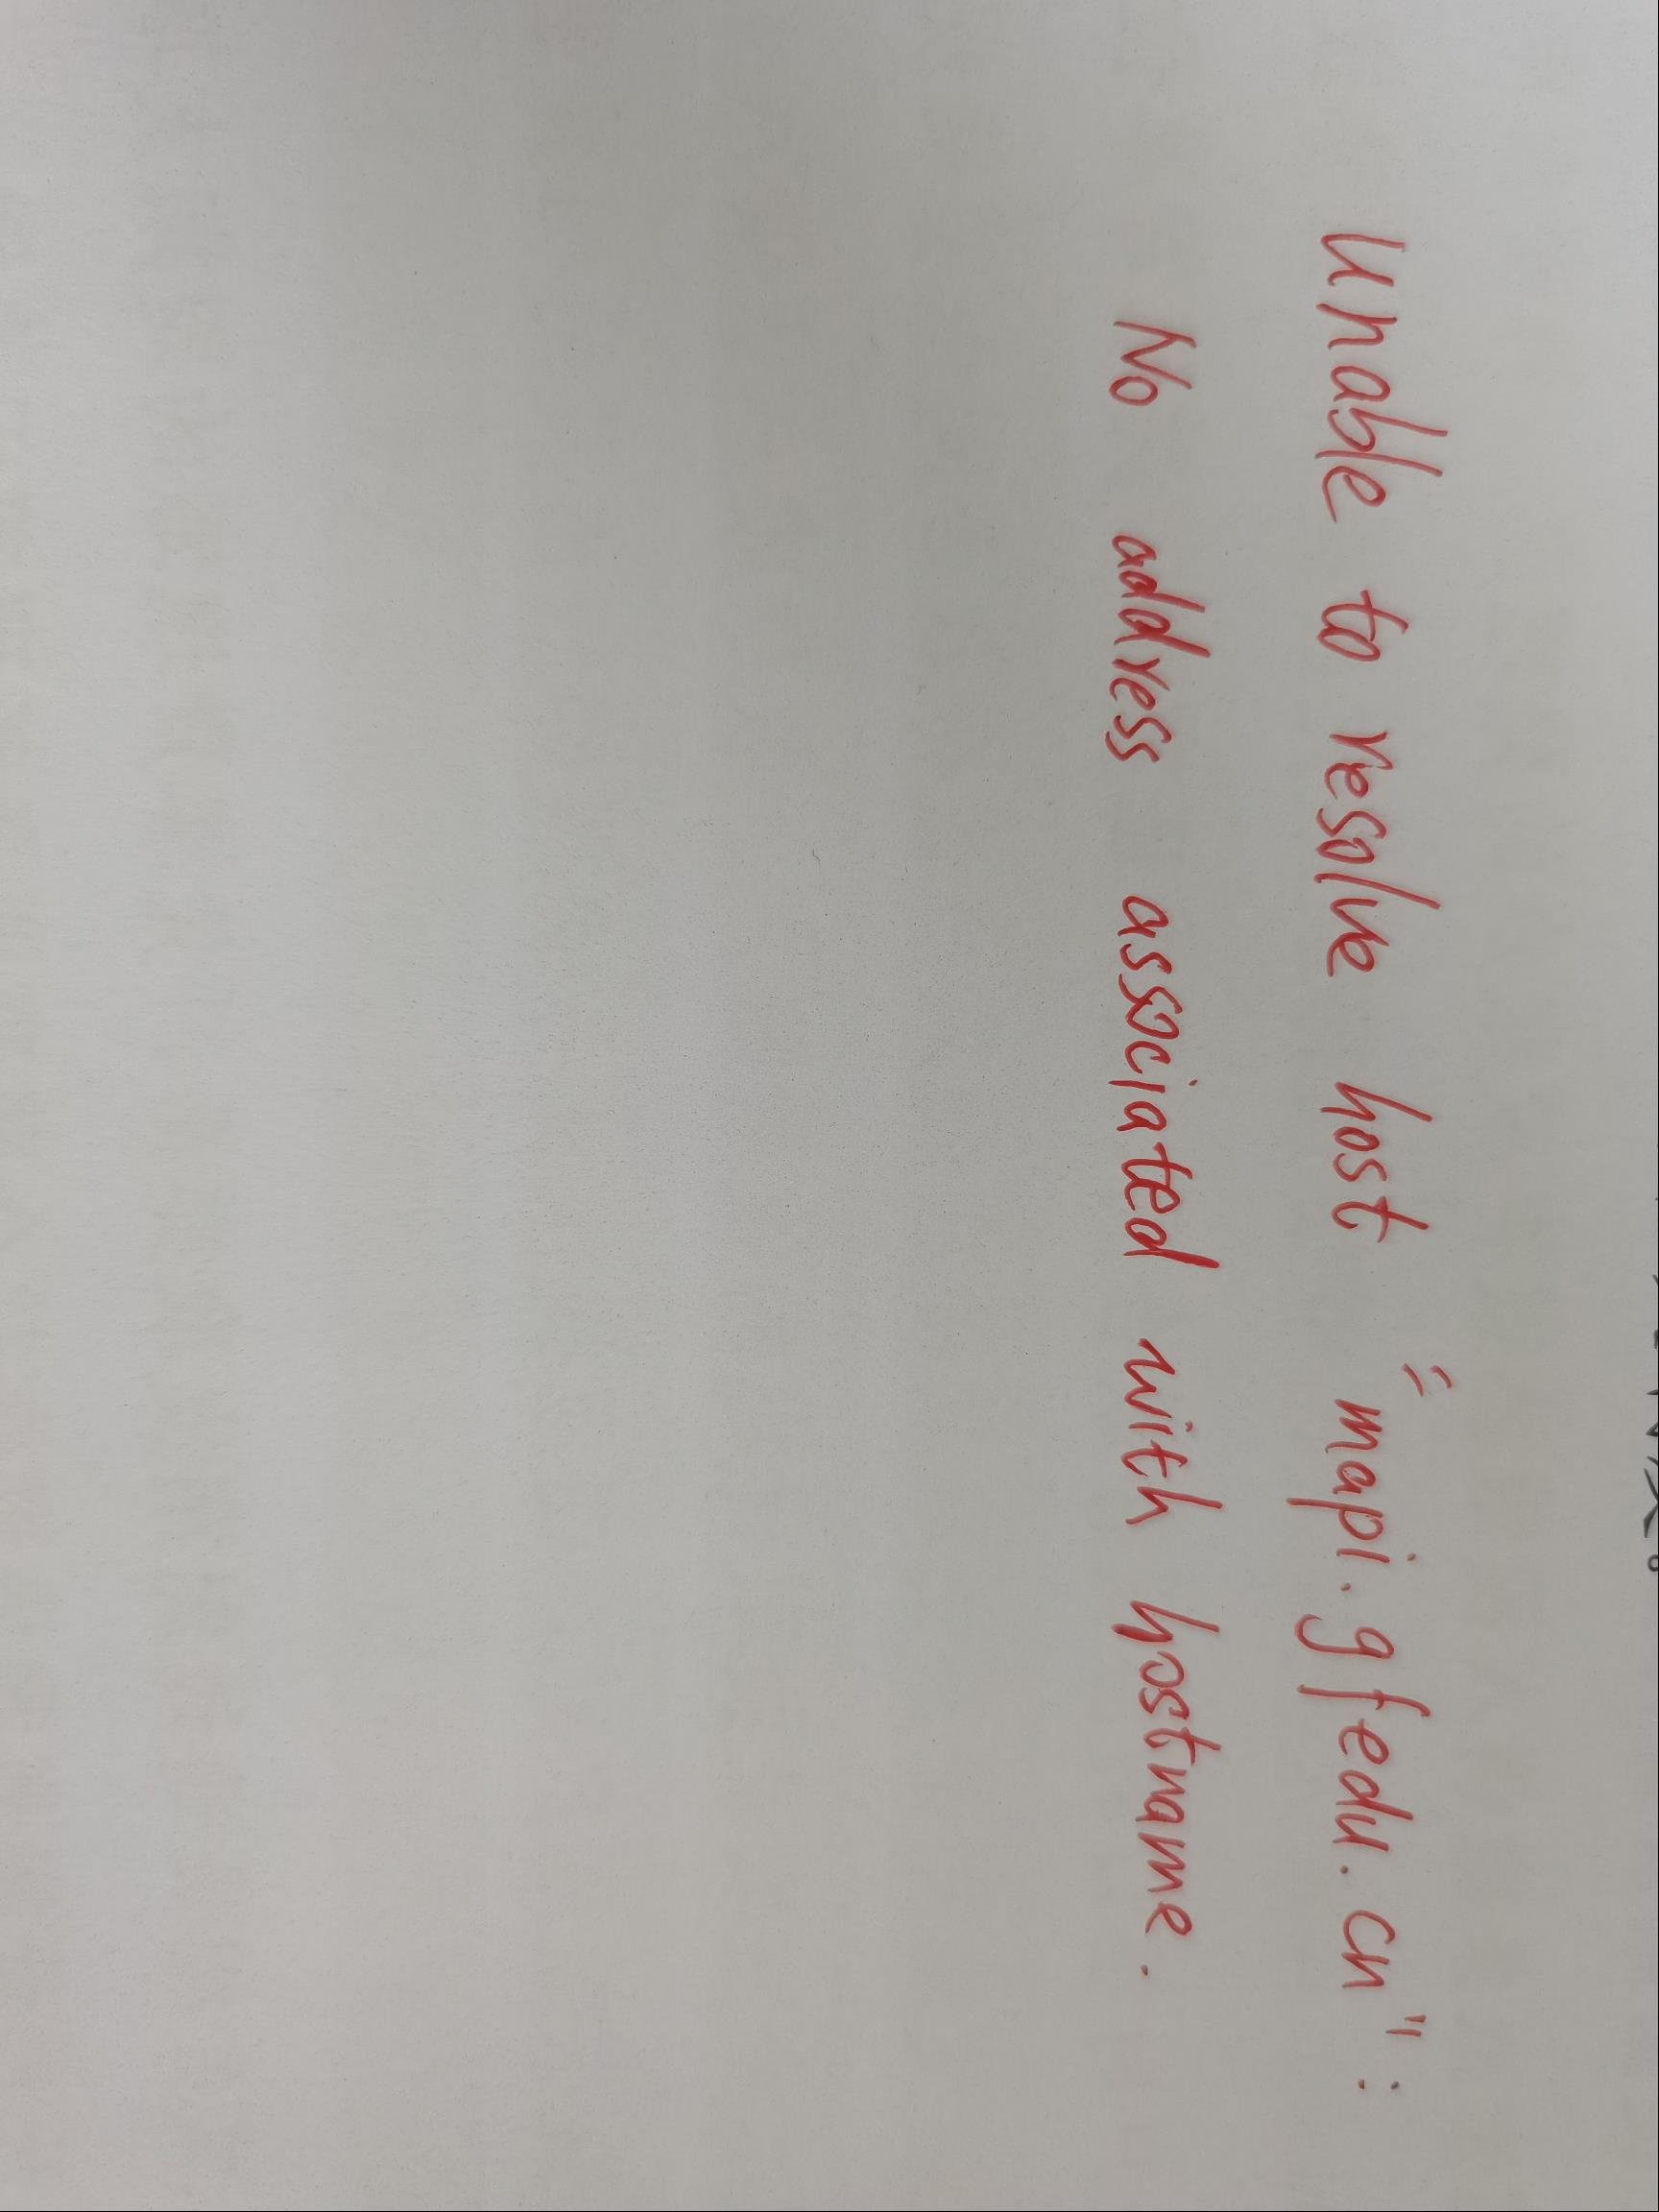 Unable to resolve host "mapi.gfedu.cn":
No address associated with hostname.